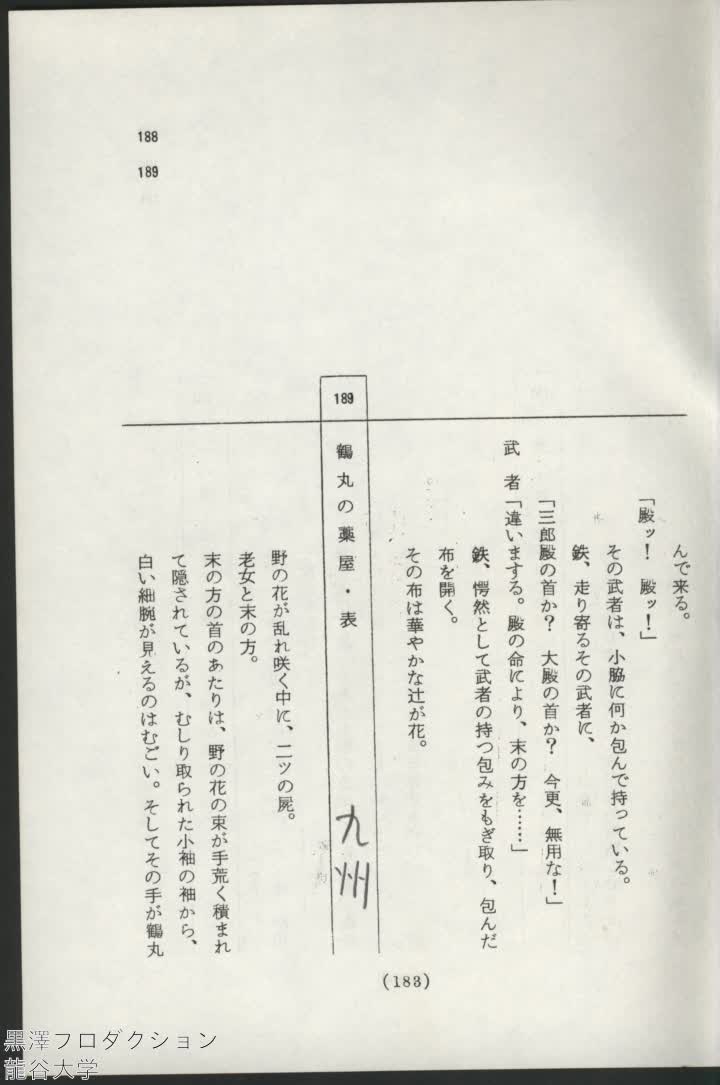 188
189
んで来る。
「殿ッ！　殿ッ！」
その武者は、小脇に何か包んで持っている。
鉄、走り寄るその武者に、
「三郎殿の首か？　大殿の首か？　今更、無用な！」
武　者「違いまする。殿の命により、末の方を……」
鉄、愕然として武者の持つ包みをもぎ取り、包んだ
布を開く。
その布は華やかな辻が花。
189
鶴丸の藁屋・表
九州
野の花が乱れ咲く中に、二ツの屍。
老女と末の方。
末の方の首のあたりは、野の花の束が手荒く積まれ
て隠されているが、むしり取られた小袖の袖から、
白い細腕が見えるのはむごい。そしてその手が鶴丸
(183)
黒澤プロダクション
龍谷大学